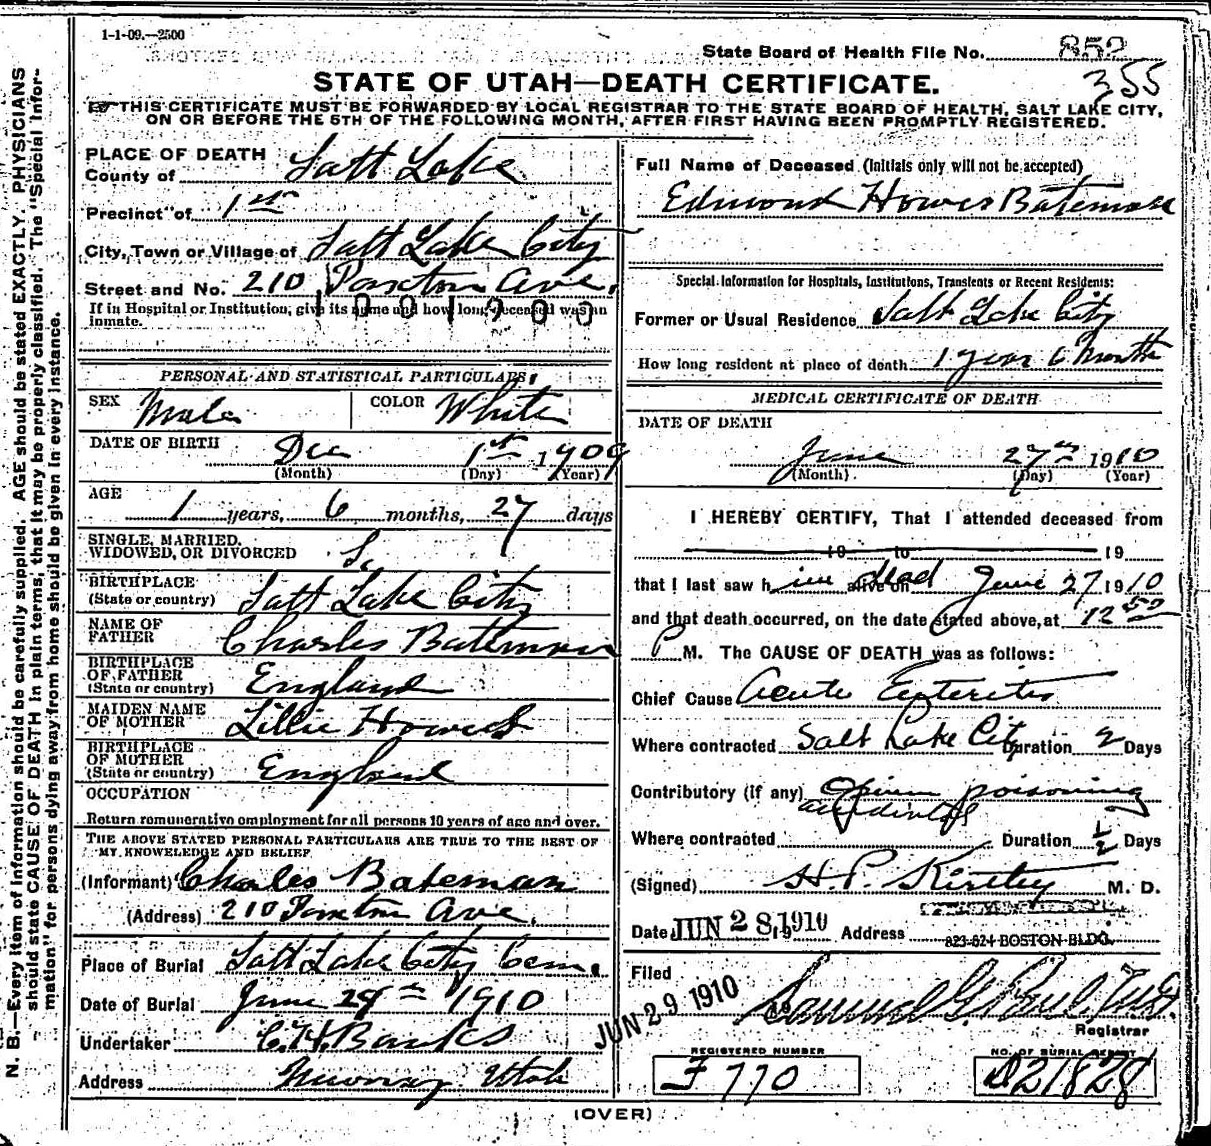 1-1-09.—2500
State Board of Health File No. 852
355
STATE OF UTAH—DEATH CERTIFICATE.
THIS CERTIFICATE MUST BE FORWARDED BY LOCAL REGISTRAR TO THE STATE BOARD OF HEALTH, SALT LAKE CITY,
ON OR BEFORE THE 5TH OF THE FOLLOWING MONTH, AFTER FIRST HAVING BEEN PROMPTLY REGISTERED.
N. B.—Every item of information should be carefully supplied. AGE should be stated EXACTLY. PHYSICIANS
should state CAUSE OF DEATH in plain terms, that it may be properly classified. The "Special Infor-
mation" for persons dying away from home should be given in every instance.
PLACE OF DEATH
County of Salt Lake
Precinct of 1st
City, Town or Village of Salt Lake City
Street and No. 210 Paxton Ave.
If in Hospital or Institution, give its name and how long deceased was an
inmate.
PERSONAL AND STATISTICAL PARTICULARS
SEX Male COLOR White
DATE OF BIRTH Dec 1st 1909
(Month) (Day) (Year)
AGE
1 years, 6 months, 27 days
SINGLE, MARRIED,
WIDOWED, OR DIVORCED S.
BIRTHPLACE
(State or country) Salt Lake City
NAME OF
FATHER Charles Bateman
BIRTHPLACE
OF FATHER
(State or country) England
MAIDEN NAME
OF MOTHER Lillie Howes
BIRTHPLACE
OF MOTHER
(State or country) England
OCCUPATION
Return remunerative employment for all persons 10 years of age and over.
THE ABOVE STATED PERSONAL PARTICULARS ARE TRUE TO THE BEST OF
MY KNOWLEDGE AND BELIEF
(Informant) Charles Bateman
(Address) 210 Paxton Ave.
Place of Burial Salt Lake City Cem.
Date of Burial June 29th 1910
Undertaker C. H. Banks
Address Murray Utah
Full Name of Deceased (Initials only will not be accepted)
Edmond Howes Bateman
Special Information for Hospitals, Institutions, Transients or Recent Residents:
Former or Usual Residence Salt Lake City
How long resident at place of death 1 year 6 month
MEDICAL CERTIFICATE OF DEATH
DATE OF DEATH
June 27th 1910
(Month) (Day) (Year)
I HEREBY CERTIFY, That I attended deceased from
19 to 19
that I last saw him alive on dead June 27 1910
and that death occurred, on the date stated above, at 12 50
P M. The CAUSE OF DEATH was as follows:
Chief Cause Acute Enteritis
Where contracted Salt Lake City Duration 2 Days
Contributory (if any) Opium poisoning
accidental
Where contracted Duration 1/2 Days
(Signed) H. P. Kirtley M. D.
Date JUN 28 1910 Address 823-824 BOSTON BLDG.
Filed JUN 29 1910
Registrar
REGISTERED NUMBER
F 770
NO. OF BURIAL PERMIT
D21828
(OVER)